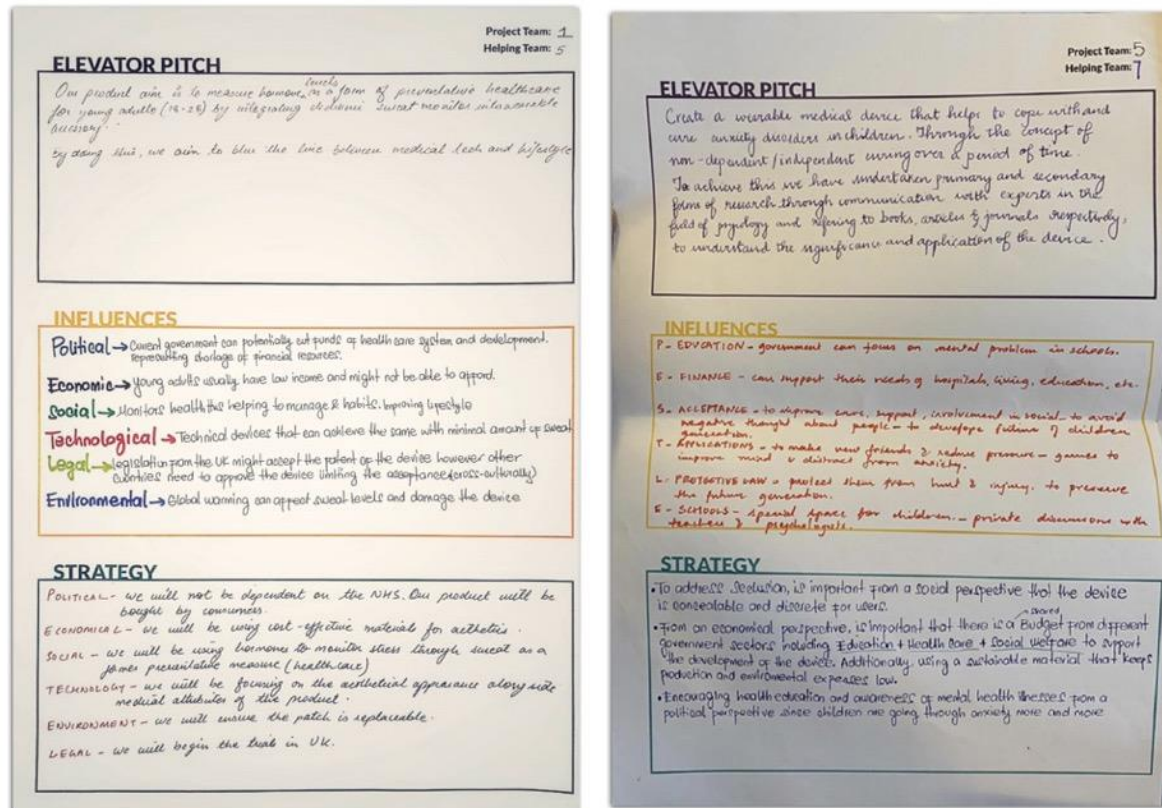 Project Team: 1
Helping Team: 5
ELEVATOR PITCH
levels
Our product aim is to measure hormone in a form of preventative healthcare
for young adults (18-25) by integrating sweat monitor into wearable
accessory.
by doing this, we aim to blur the line between medical tech and lifestyle
INFLUENCES
Political → Current government can potentially cut funds of health care system and development.
representing shortage of financial resources.
Economic → young adults usually have low income and might not be able to afford.
Social → Monitors health thus helping to manage & habits. Improving lifestyle
Technological → Technical devices that can achieve the same with minimal amount of sweat
Legal → legislation from the UK might accept the patent of the device however other
countries need to approve the device limiting the acceptance (cross-culturally)
Environmental → Global warming can affect sweat levels and damage the device
STRATEGY
POLITICAL - we will not be dependent on the NHS. Our product will be
bought by consumers.
ECONOMICAL - we will be using cost-effective materials for aesthetics.
SOCIAL - we will be using hormones to monitor stress through sweat as a
preventative measure (healthcare)
TECHNOLOGY - we will be focusing on the aesthetical appearance alongside
medical attributes of the product.
ENVIRONMENT - we will ensure the patch is replaceable.
LEGAL - we will begin the trials in UK.
Project Team: 5
Helping Team: 7
ELEVATOR PITCH
Create a wearable medical device that helps to cope with and
cure anxiety disorders in children. Through the concept of
non-dependent/independent curing over a period of time.
To achieve this we have undertaken primary and secondary
forms of research through communication with experts in the
field of psycology and refering to books, articles & journals respectively,
to understand the significance and application of the device.
INFLUENCES
P - EDUCATION - government can focus on mental problem in schools.
E - FINANCE - can support their needs of hospitals, living, education, etc.
S - ACCEPTANCE - to improve care, support, involvement in social - to avoid
negative thought about people - to develope future of children
generation.
T - APPLICATIONS - to make new friends & reduce pressure - games to
improve mind & distract from anxiety.
L - PROTECTIVE LAW - protect them from hurt & injury. to preserve
the future generation.
E - SCHOOLS - special space for children - private discussions with
teachers & psychologists.
STRATEGY
• To address seclusion, is important from a social perspective that the device
is concealable and discrete for users.
shared
• From an economical perspective, is important that there is a Budget from different
government sectors including Education + Health Care + Social Welfare to support
the development of the device. Additionally, using a sustainable material that keeps
production and enviromental expenses low.
• Encouraging health education and awareness of mental health illnesses from a
political perspective since children are going through anxiety more and more